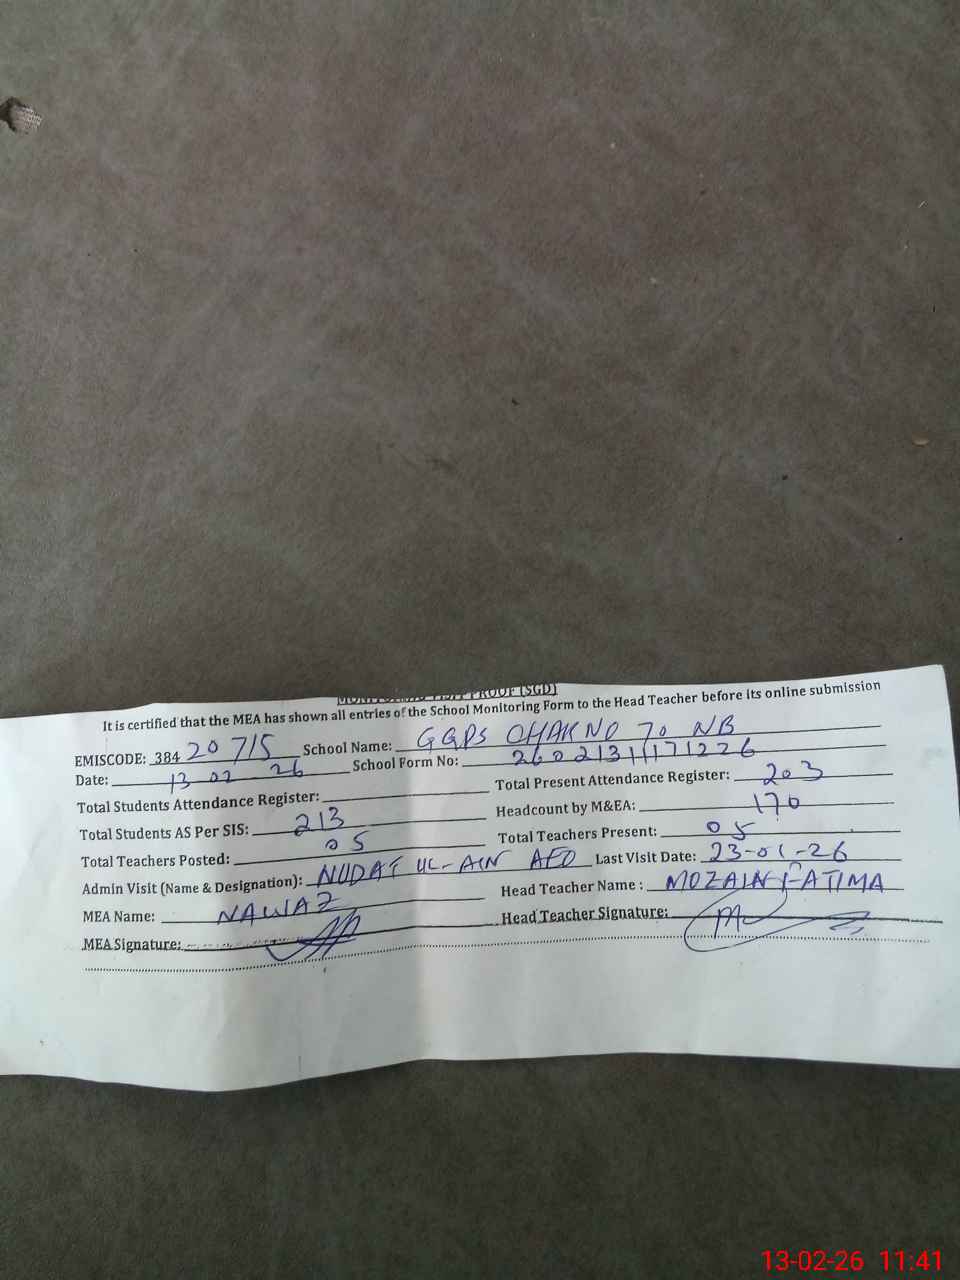 MONITORING VISIT PROOF (SGD)
It is certified that the MEA has shown all entries of the School Monitoring Form to the Head Teacher before its online submission
EMISCODE: 384 20715 School Name: GGPS CHAK NO 70 NB
Date: 13 02 26 School Form No: 260213111171226
Total Students Attendance Register: Total Present Attendance Register: 203
Total Students AS Per SIS: 213 Headcount by M&EA: 170
Total Teachers Posted: 05 Total Teachers Present: 05
Admin Visit (Name & Designation): NUDAT UL-AIN AEO Last Visit Date: 23-01-26
MEA Name: NAWAZ Head Teacher Name: MOZAIN FATIMA
MEA Signature: Head Teacher Signature:
13-02-26 11:41